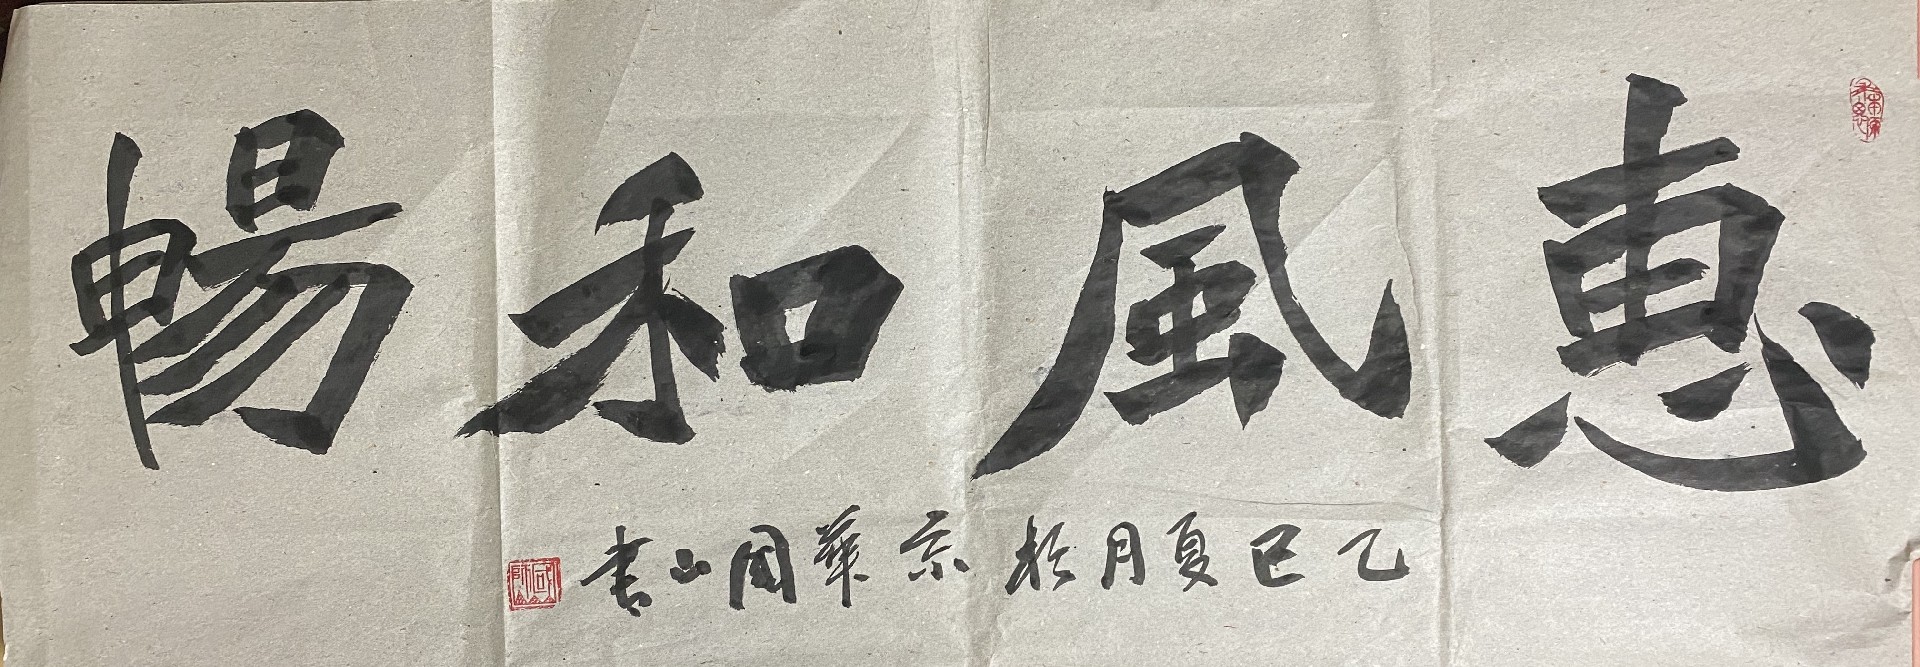 惠風和暢
乙巳夏月於京華国山书